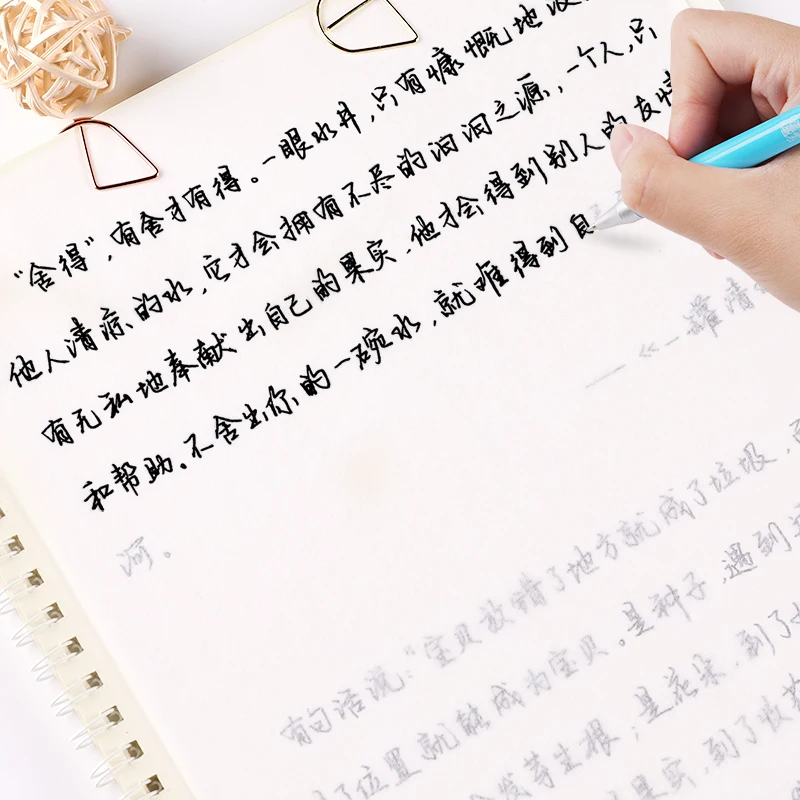 “舍得”，有舍才有得。一眼水井，只有慷慨地
他人清凉的水，它才会拥有不尽的汩汩之源，一个人，只
有无私地奉献出自己的果实，他才会得到别人的友情
和帮助。不舍出你的一碗水，就难得到自
河。
——《一罐清
有句话说：“宝贝放错了地方就成了垃圾，
了位置就能成为宝贝。是种子，遇到
会发芽生根；是花朵，到了
果实，到了收获